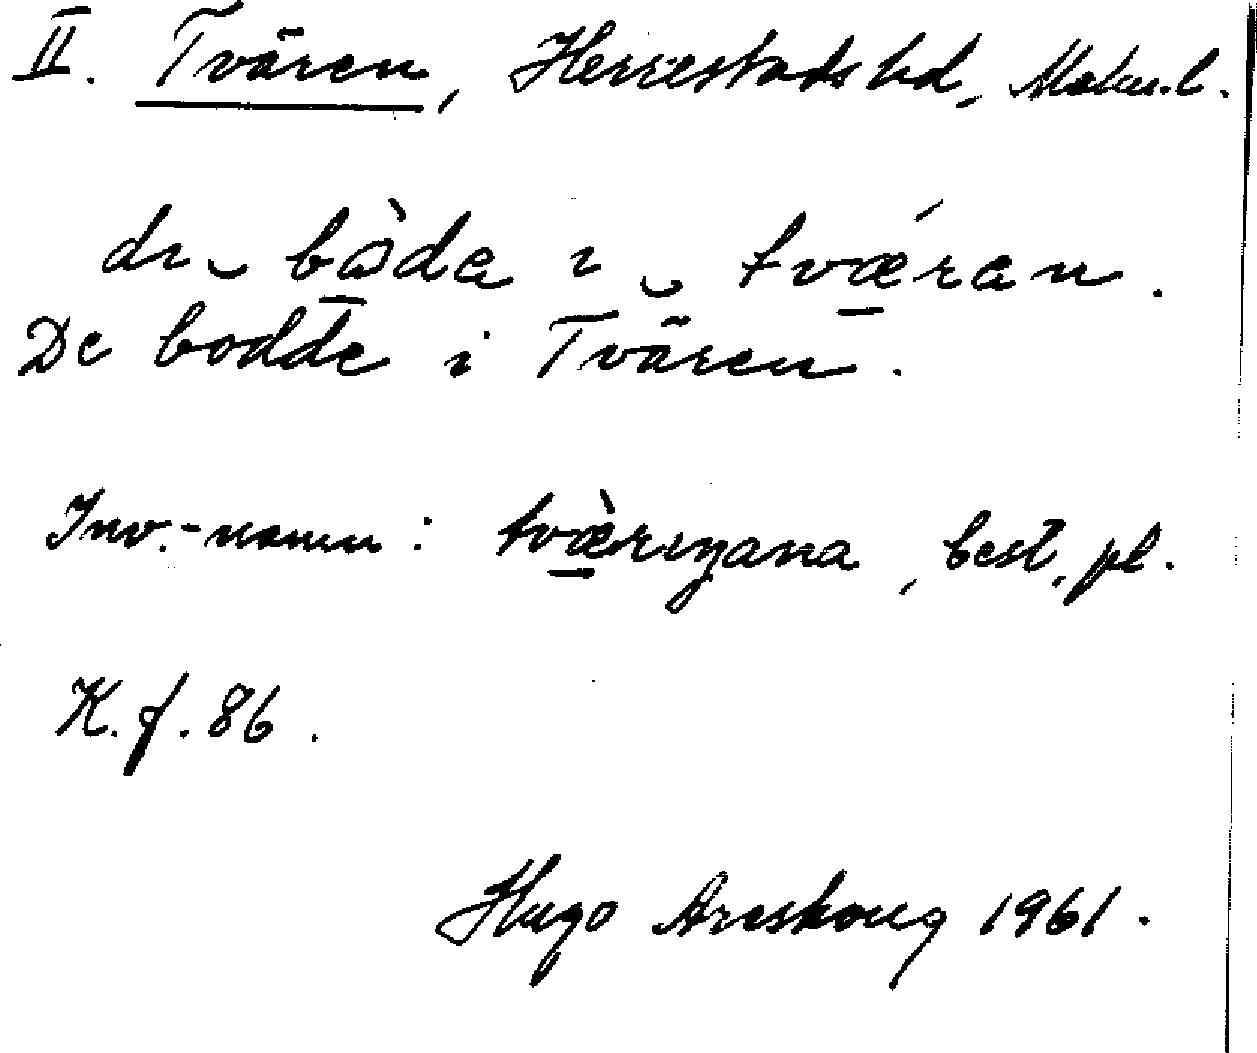 II. Tvären, Herrestads hd, Malm. l.
di ‿ bo̱̊̀da i ‿ tvǽ̱ran.
De bodde i Tvären.
Inv.-namn: tvæ̱̀rıŋana, best. pl.
K. f. 86.
Hugo Areskoug 1961.